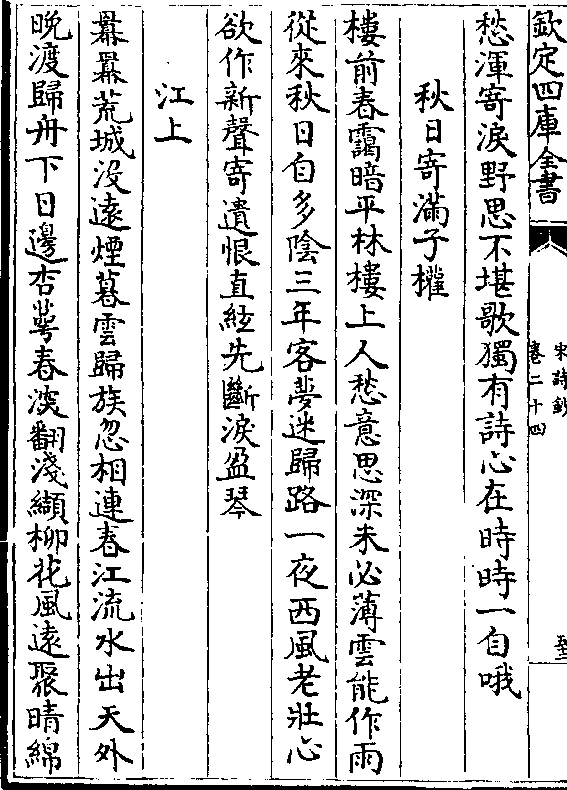 欽定四庫全書
宋詩鈔
卷二十四
愁渾寄淚野思不堪歌獨有詩心在時時一自哦
秋日寄滿子權
樓前春靄暗平林樓上人愁意思深未必薄雲能作雨
從來秋日自多陰三年客夢迷歸路一夜西風老壯心
欲作新聲寄遺恨直絃先斷淚盈琴
江上
羃羃荒城没遠煙暮雲歸族忽相連春江流水出天外
晚渡歸舟下日邊杏蕚春深翻淺纈柳花風遠聚晴綿